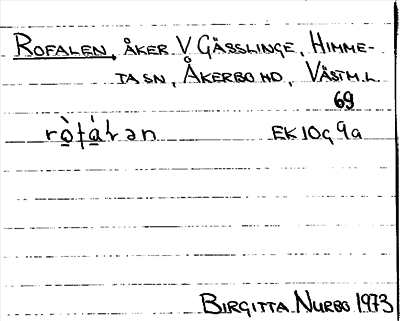 ROFALEN, ÅKER V GÄSSLINGE, HIMME-
TA SN, ÅKERBO HD, VÄSTM.L.
69
EK 10g 9a
BIRGITTA NURBO 1973